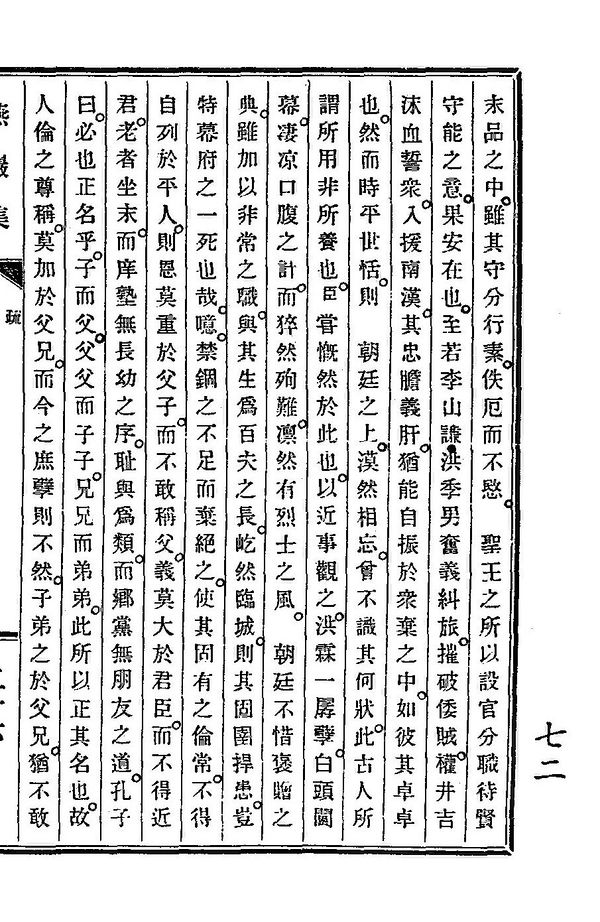 末品之中。雖其守分行素。佚厄而不愍。　聖王之所以設官分職待賢
守能之意。果安在也。至若李山謙洪季男奮義糾旅。摧破倭賊。權井吉
沬血誓衆。入援南漢。其忠膽義肝。猶能自振於衆棄之中。如彼其卓卓
也。然而時平世恬。則　朝廷之上。漠然相忘。曾不識其何狀。此古人所
謂所用非所養也。臣甞慨然於此也。以近事觀之。洪霖一孱孽。白頭閫
幕。凄凉口腹之計。而猝然殉難。凛然有烈士之風。　朝廷不惜褒贈之
典。雖加以非常之職。與其生爲百夫之長。屹然臨城。則其固圉捍患。豈
特幕府之一死也哉。噫。禁錮之不足而棄絕之。使其固有之倫常。不得
自列於平人。則恩莫重於父子。而不敢稱父。義莫大於君臣。而不得近
君。老者坐末。而庠塾無長幼之序。耻與爲類。而鄕黨無朋友之道。孔子
曰。必也正名乎。子而父。父父而子子。兄兄而弟弟。此所以正其名也。故
人倫之尊稱。莫加於父兄。而今之庶孽則不然。子弟之於父兄。猶不敢
集
疏
七二